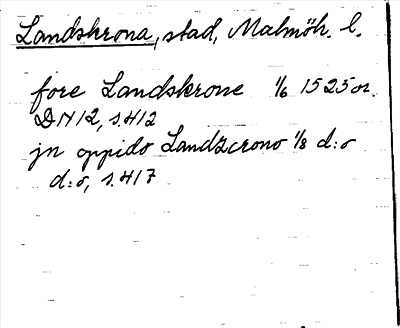 Landskrona, stad, Malmöh. l.
före Landskrone 1/6 1525 or.
DN 12, s. 412
jn oppido Landzcrono 1/8 d:o
d:o, s. 417